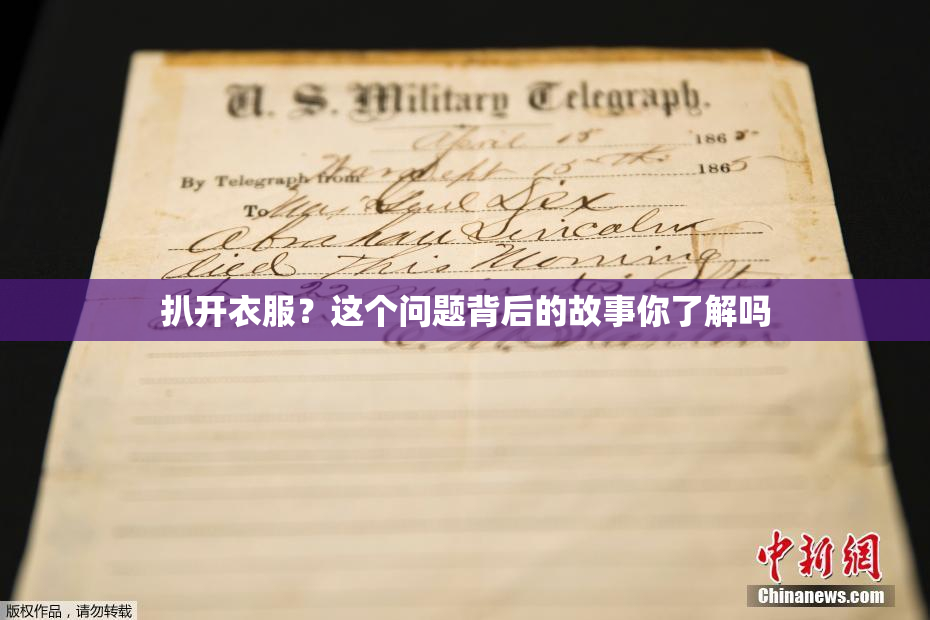 U. S. Military Telegraph.
April 15 1865
By Telegraph from War Dept 15th 1865
To Maj Genl Dix
Abraham Lincoln
died This Morning
at 22 minutes after
扒开衣服？这个问题背后的故事你了解吗
E. M. Stanton
中新網
Chinanews.com
版权作品，请勿转载